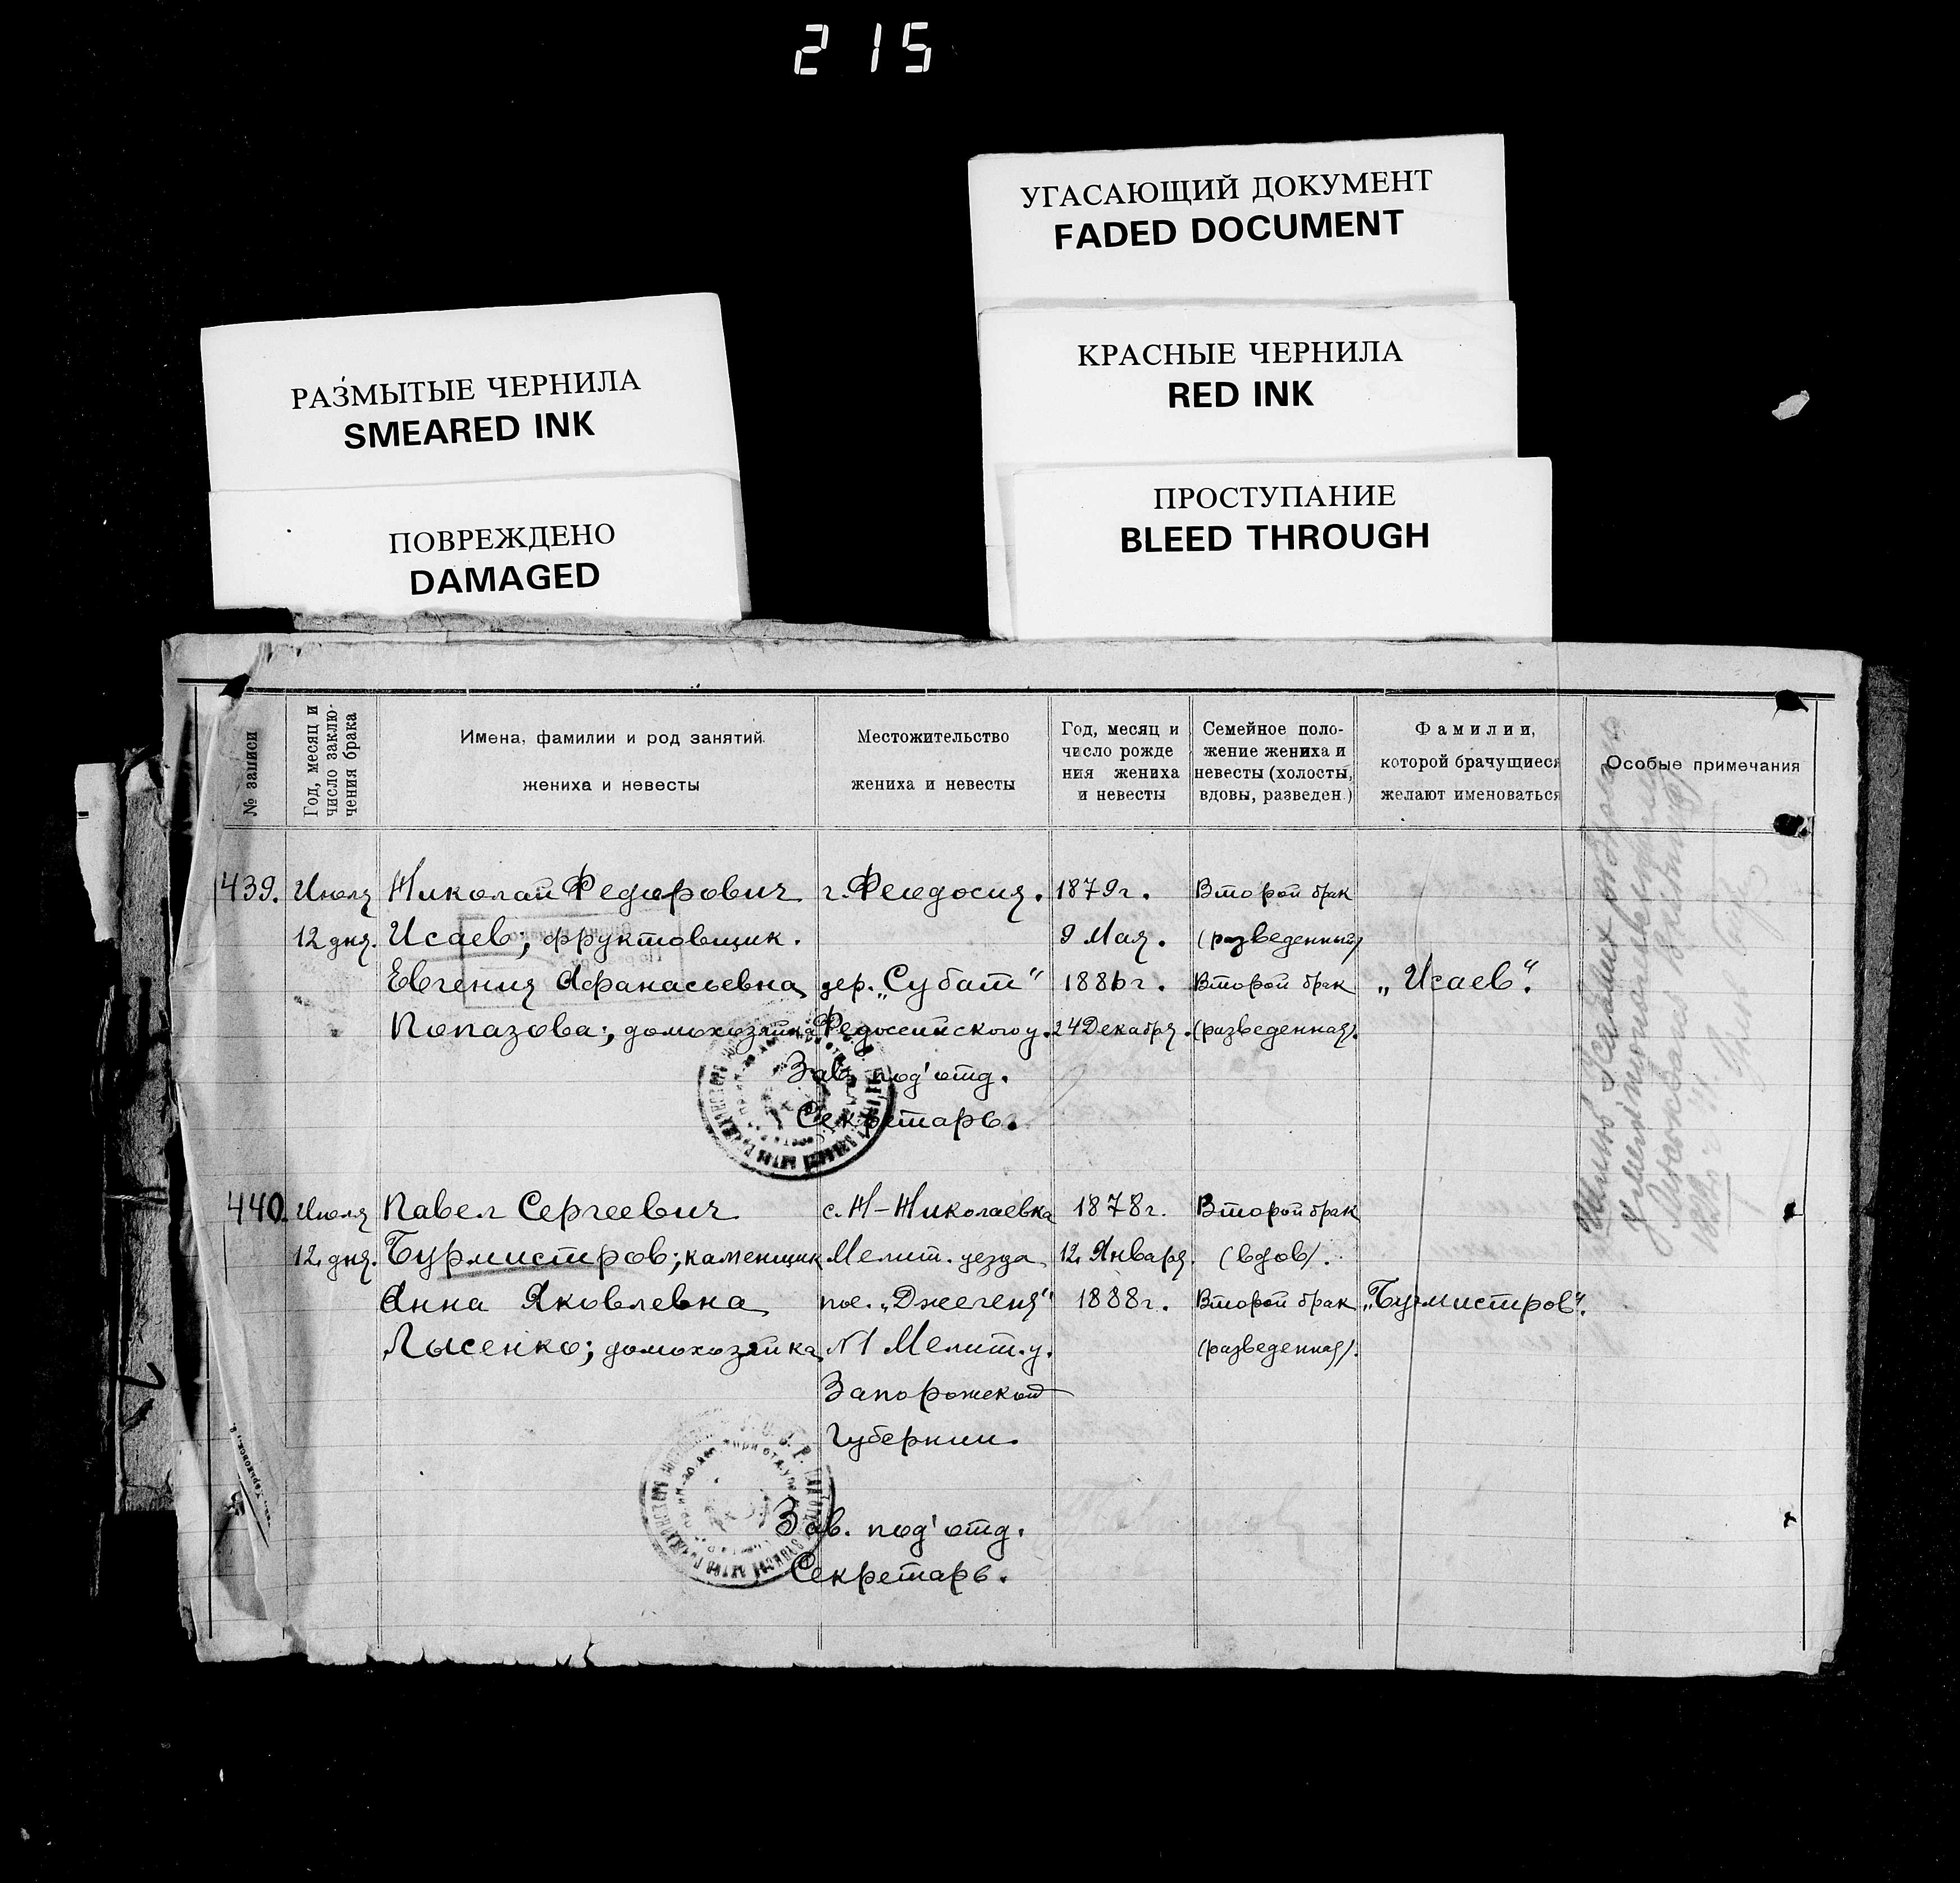 215
УГАСАЮЩИЙ ДОКУМЕНТ
FADED DOCUMENT
КРАСНЫЕ ЧЕРНИЛА
RED INK
РАЗМЫТЫЕ ЧЕРНИЛА
SMEARED INK
ПРОСТУПАНИЕ
BLEED THROUGH
ПОВРЕЖДЕНО
DAMAGED
№ записи
Год, месяц и
число заклю-
чения брака
Имена, фамилии и род занятий
жениха и невесты
Местожительство
жениха и невесты
Год, месяц и
число рожде
ния жениха
и невесты
Семейное поло-
жение жениха и
невесты (холосты,
вдовы, разведен.)
Фамилии,
которой брачущиеся
желают именоваться
Особые примечания
439. Июля Николай Федорович г. Феодосия. 1879г. Второй брак
12 дня. Исаев; фруктовщик. 9 Мая. (разведенный)
Евгения Афанасьевна дер. „Субат" 1886г. Второй брак „Исаев".
Попазова; домохозяйка Федосейского у. 24 Декабря. (разведенная).
Зав. под'отд.
Секретарь.
440. Июля Павел Сергеевич с. Н-Николаевка 1878г. Второй брак
12 дня. Бурмистров; каменщик Мелит. уезда 12 Января. (вдов).
Анна Яковлевна пос. „Джегеня" 1888г. Второй брак „Бурмистров".
Лысенко; домохозяйка N1 Мелит. у. (разведенная).
Запорожской
Губернии.
Зав. под'отд.
Секретарь.